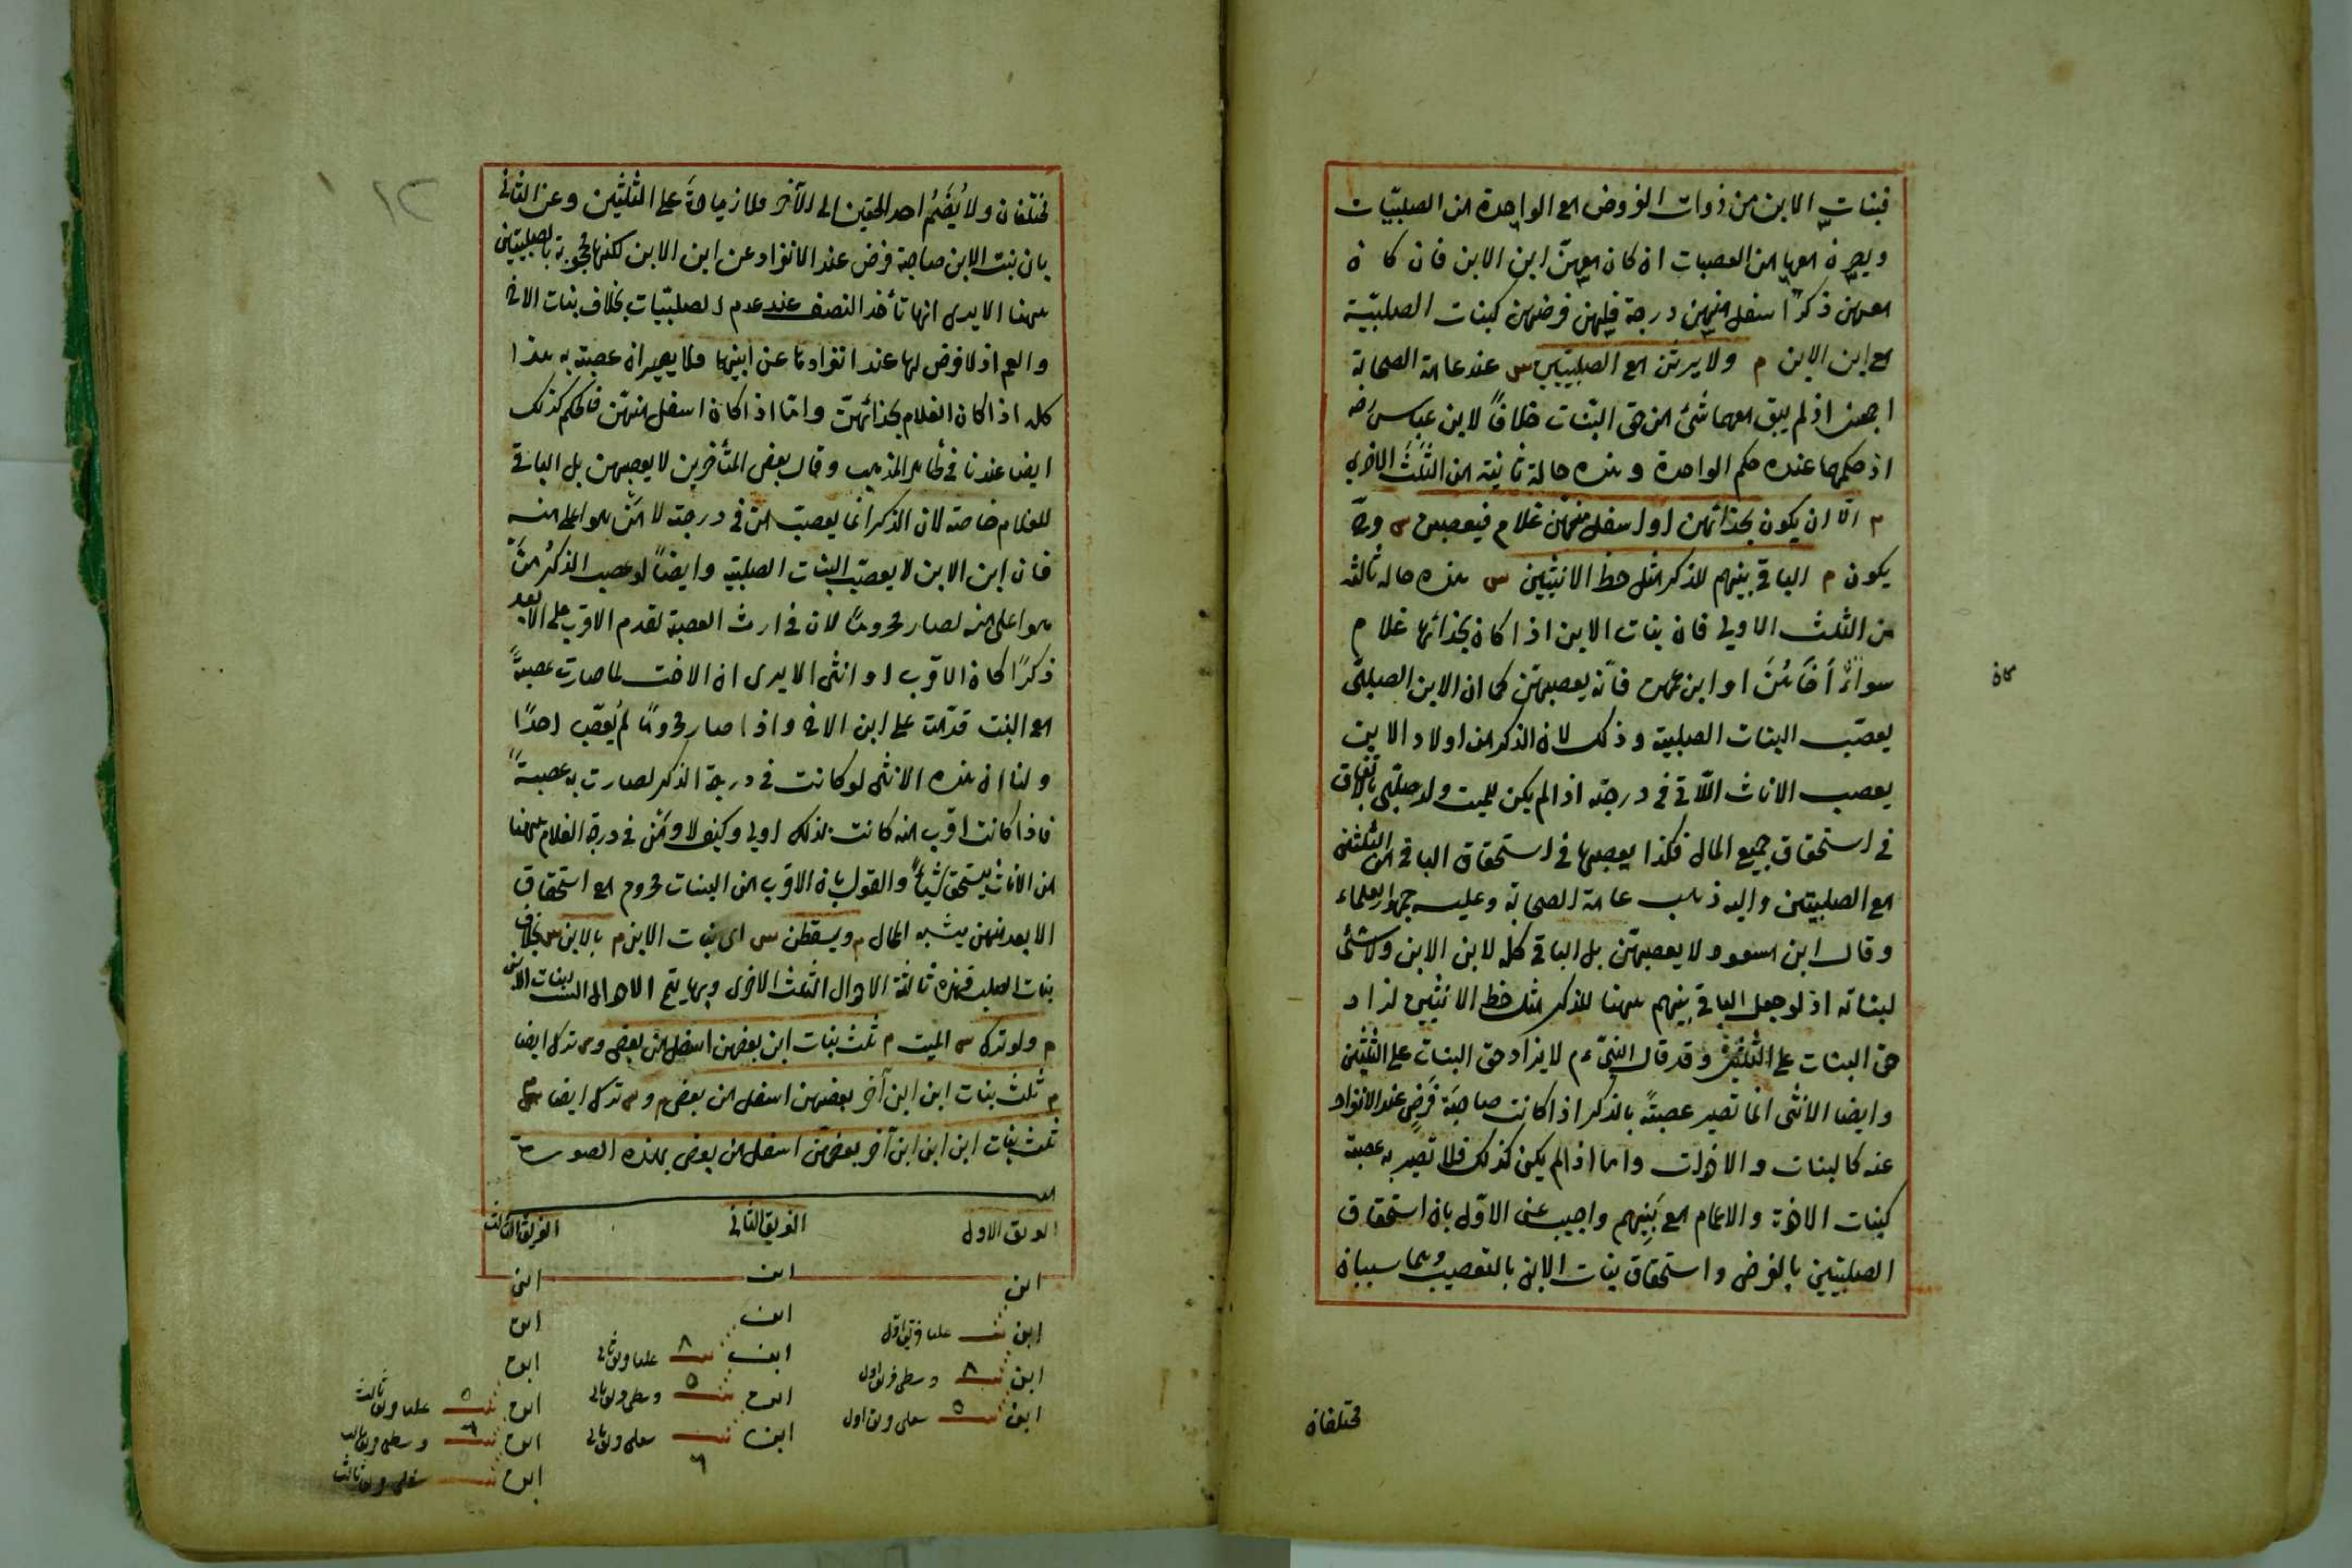 فبنات الابن من ذوات الفروض مع الواحدة من الصلبيّات
ويصرن معها من العصبات ان كان معهنّ ابن الابن فان كان
معهن ذكرٌ اسفل منهن درجة فلهن فرضهن كبنات الصلبيّة
مع ابن الابن م ولا يرثن مع الصلبيتين س عند عامة الصحابة
اجمعن اذ لم يبق معهما شئ من حق البنات خلافاً لابن عباس رضه
اذ حكمهما عنده حكم الواحدة وهذه حالة ثانية من الثلث الاخرى
م الّا ان يكون بحذائهن او اسفل منهن غلام فيعصبهن س وح
يكون م الباقى بينهم للذكر مثل حظ الانثيين س هذه حاله ثالثه
من الثلث الاولى فان بنات الابن اذا كان بحذائها غلام
سواءٌ أخاهنّ او ابن عمهن فانّه يعصبهنّ كما ان الابن الصلبىّ
كان
يعصّب البنات الصلبية وذلك لان الذكر من اولاد الابن
يعصب الاناث اللّاتى فى درجته اذا لم يكن للميت ولد صلبىّ بالاتفاق
فى استحقاق جميع المال فكذا يعصبها فى استحقاق الباقى من الثلثين
مع الصلبيتين واليه ذهب عامة الصحابة وعليه جمهور العلماء
وقال ابن مسعود لا يعصبهنّ بل الباقى كله لابن الابن ولا شئ
لبناته اذ لو جعل الباقى بينهم ههنا للذكر مثل حظ الانثيين لزاد
حق البنات على الثلثين وقد قال النبىّ ءم لا يزاد حق البنات على الثلثين
وايضا الانثى انما تصير عصبةً بالذكر اذا كانت صاحبَة فَرَضٍ عند الانفراد
عنه كالبنات والاخوات واما اذا لم يكن كذلك فلا تصير به عصبة
كبنات الاخوة والاعمام مع بَنِيهم واجيب عن الاوّل بان استحقاق
الصلبيتين بالفرض واستحقاق بنات الابن بالتعصيب وهما سببان
مختلفان
١٢
مختلفان ولا يُضَمُ احد الحقين الى الآخر فلا زيادةَ على الثلثين وعن الثانى
بان بنت الابن صاحبة فرض عند الانفراد عن ابن الابن لكنها محجوبة بالصلبيتين
ههنا الا يرى انها تأخذ النصف عند عدم الصلبيّات بخلاف بنات الاخ
والعم اذ لا فرض لها عند انفرادها عن ابنها فلا يصيران عصبة به هذا
كله اذا كان الغلام بحذائهنّ وامّا اذا كان اسفل منهنّ فالحكم كذلك
ايضا عندنا فى ظاهر المذهب وقال بعض المتأخرين لا يعصبهن بل الباقى
للغلام خاصة لان الذكر انما يعصب من فى درجته لا مَنْ هو اعلى منه
فان ابن الابن لا يعصّب البنات الصلبية وايضاً لو عصب الذكرُ منَ
هو اعلى منه لصار محروماً لان فى ارث العصبة تقدم الاقرب على الابعد
ذكرًا كان الاقرب او انثى الا يرى ان الاخت لما صارت عصبةً
مع البنت قدّمت على ابن الاخ واذا صار محروما لم يُعصّب احدًا
ولنا ان هذه الانثى لو كانت فى درجة الذكر لصارت به عصبةً
فاذا كانت اقرب منه كانت بذلك اولى وكيف لا ومَن فى درجة الغلام ههنا
من الاناث يستحق شيأً والقول بان الاقرب من البنات محروم مع استحقاق
الابعد منهن يشبه المحال م ويسقطن س اى بنات الابن م بالابن س بخلاف
بنات الصلب فهذه ثالثة الاحوال الثلث الاخرى وبها يتم الاحوال الست لبنات الابن
م ولو ترك س الميت م ثلث بنات ابن بعضهن اسفل من بعض و س ترك ايضا
م ثلث بنات ابن ابن آخر بعضهن اسفل من بعض م و س ترك ايضا س م
ثلث بنات ابن ابن ابن آخر بعضهنّ اسفل من بعض بهذه الصورة
الفريق الاول الفريق الثانى الفريق الثالث
ابن ابن ابن
ابن بنت عليا فريق اوّل ابن ابن
ابن بنت ٨ وسطى فريق اول ابن بنت ٨ عليا فريق ثانى ابن
ابن بنت ٥ سفلى فريق اول ابن بنت ٥ وسطى فريق ثانى ابن بنت ٥ عليا فريق ثالث
ابن بنت ٦ سفلى فريق ثانى ابن بنت ٦ وسطى فريق ثالث
ابن بنت سفلى فريق ثالث